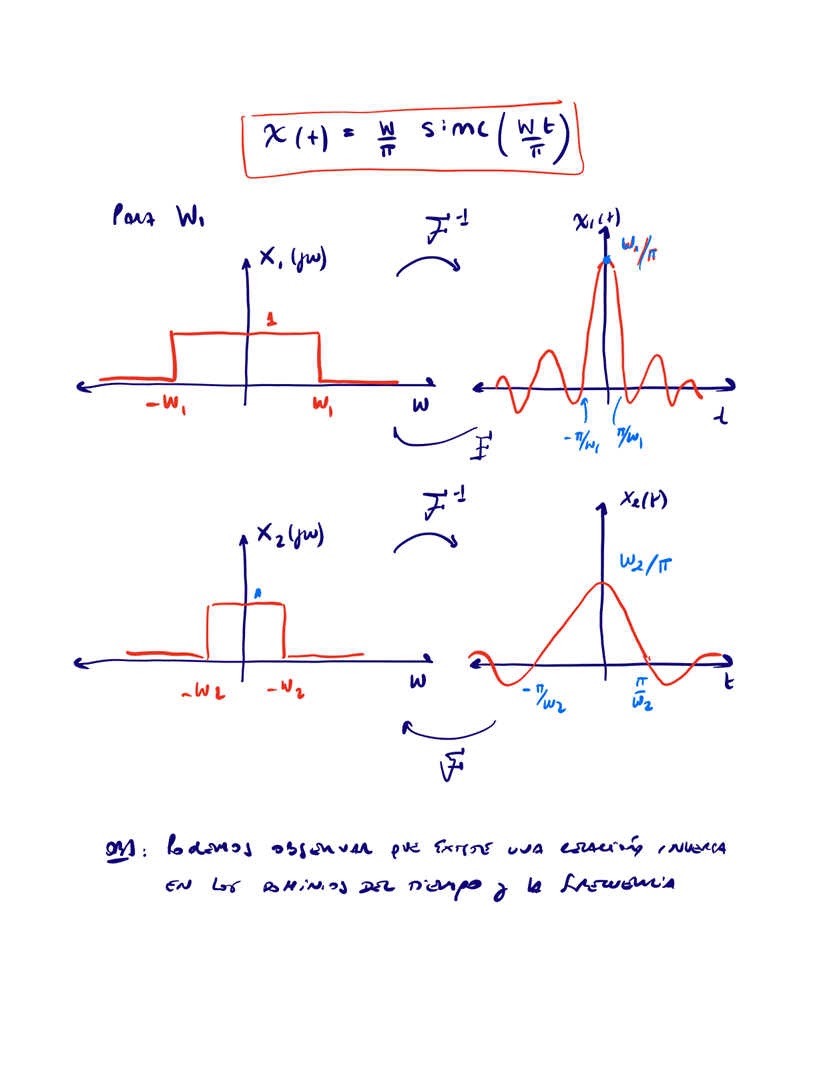 x(t) = W/π sinc(Wt/π)
Para W₁
F⁻¹
x₁(t)
W₁/π
X₁(jω)
1
-W₁
W₁
ω
t
-π/W₁
π/W₁
F
F⁻¹
x₂(t)
X₂(jω)
W₂/π
1
-W₂
-W₂
ω
-π/W₂
π/W₂
t
F
OBS: Podemos observar que existe una relación inversa
en los dominios del tiempo y la frecuencia